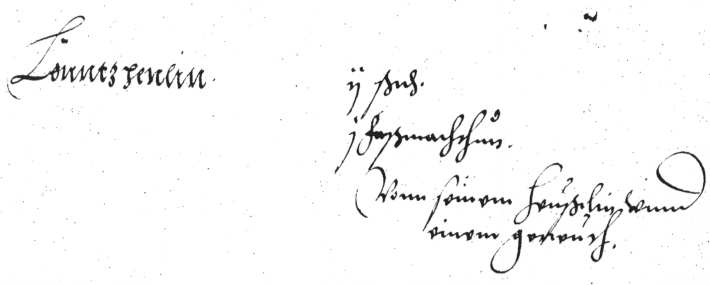 Conntz henlin.
ij ßɥ.
j faßnachthun.
Vonn seinem heußlin vnnd
einem gereuth.